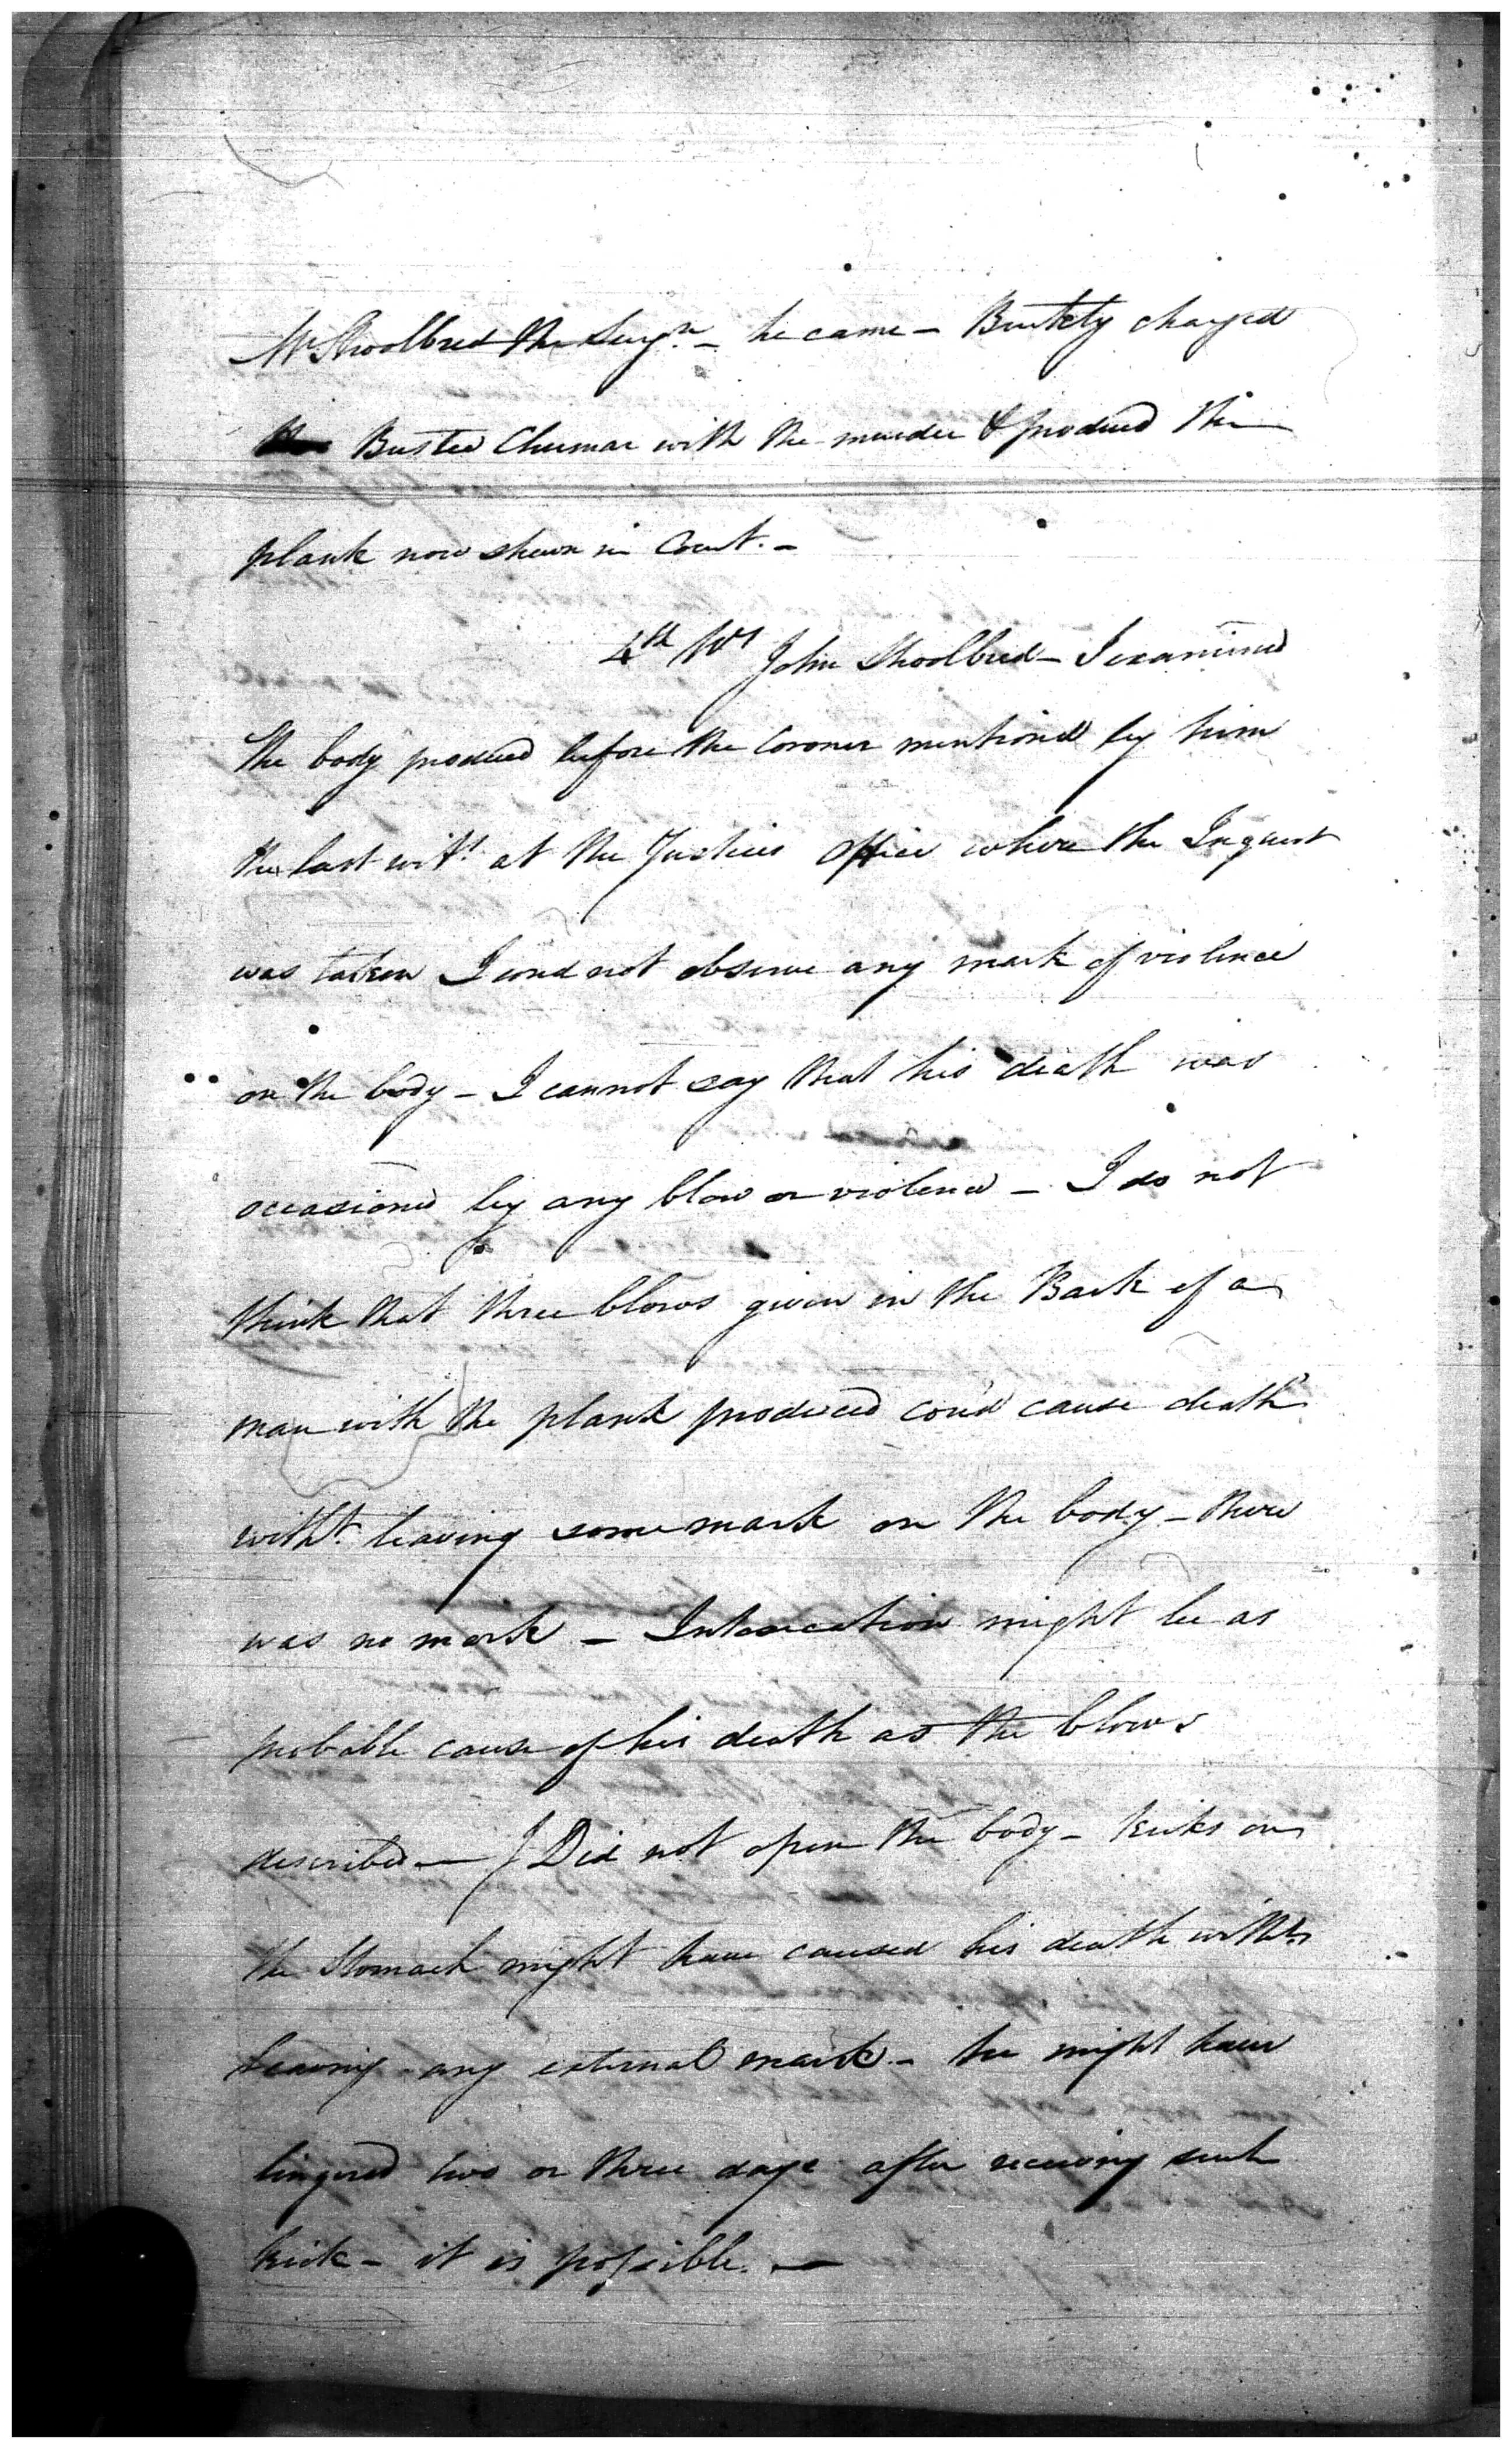 Mr Shoolbred the Surgn. - he came - Buxtety charged
Bustee Chumar with the murder & produced the
plank now shewn in Court. -
4th Wt John Shoolbred - I examined
the body produced before the Coroner mentioned by him
the last witt. at the Justices Office where the Inquest
was taken I coud not observe any mark of violence
on the body - I cannot say that his death was
occasioned by any blow or violence - I do not
think that three blows given in the Back of a
man with the plank produced cou'd cause death
witht. leaving some mark on the body - there
was no mark - Intoxication might be as
probable cause of his death as the blows
described - I Did not open the body - kicks on
the Stomach might have caused his death witht.
leaving any external mark - he might have
lingered two or three days after receiving such
kick - it is possible. -